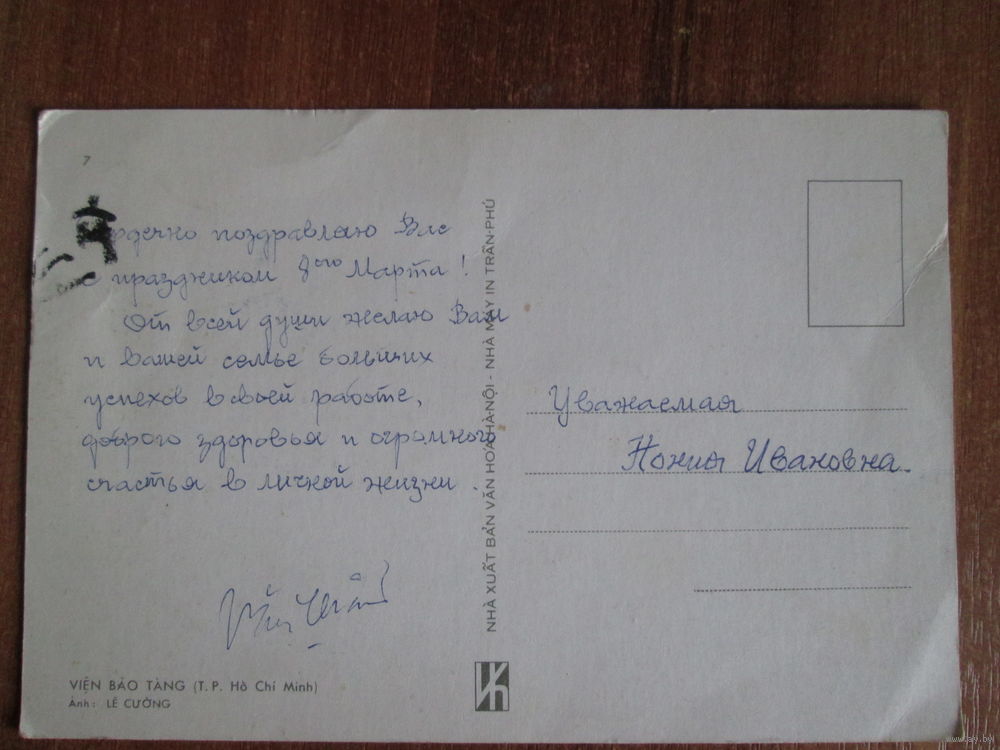 7
Сердечно поздравляю Вас
с праздником 8ого Марта!
От всей души желаю Вам
и вашей семье больших
успехов в своей работе,
доброго здоровья и огромного
счастья в личной жизни.
VIỆN BẢO TÀNG (T.P. Hồ Chí Minh)
Ảnh: LÊ CƯỜNG
NHÀ XUẤT BẢN VĂN HOÁ HÀ NỘI - NHÀ MÁY IN TRẦN-PHÚ
Уважаемая
Нонны Ивановна.
www.ay.by